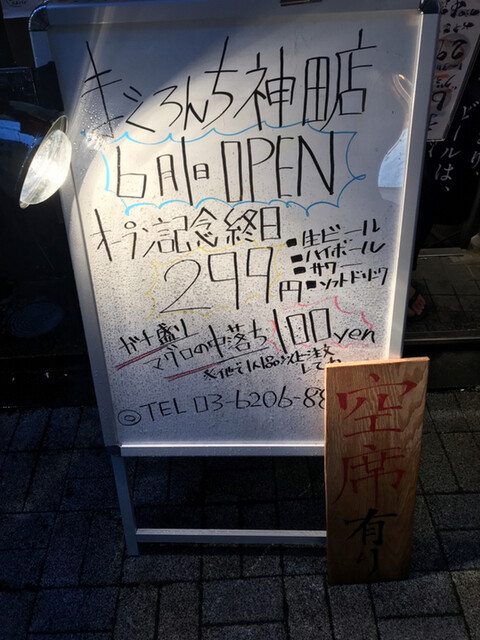 まぐろんち神田店
6月1日OPEN
オープン記念終日
299円
■生ビール
■ハイボール
■サワー
■ソフトドリンク
ガチ盛り
マグロの中落ち100yen
◎TEL 03-6206-88
空席有り
ビールは、